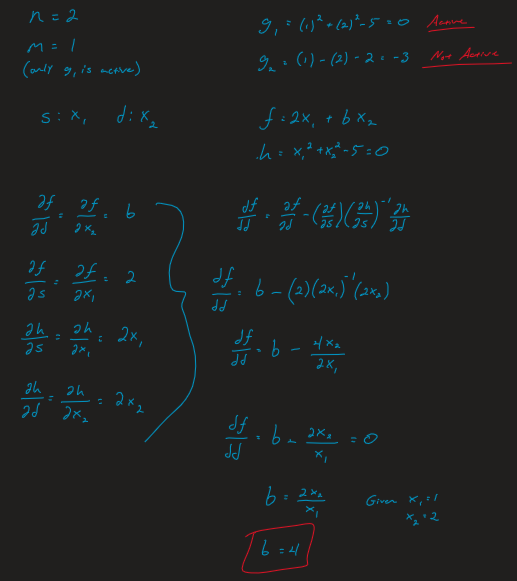 n = 2
m = 1
(only g₁ is active)
g₁ = (1)² + (2)² - 5 = 0 Active
g₂ = (1) - (2) - 2 = -3 Not Active
s: x₁ d: x₂
f = 2x₁ + bx₂
h = x₁² + x₂² - 5 = 0
∂f/∂d = ∂f/∂x₂ = b
∂f/∂s = ∂f/∂x₁ = 2
∂h/∂s = ∂h/∂x₁ = 2x₁
∂h/∂d = ∂h/∂x₂ = 2x₂
df/dd = ∂f/∂d - (∂f/∂s)(∂h/∂s)⁻¹ ∂h/∂d
df/dd = b - (2)(2x₁)⁻¹(2x₂)
df/dd = b - 4x₂/2x₁
df/dd = b - 2x₂/x₁ = 0
b = 2x₂/x₁ Given x₁ = 1
x₂ = 2
b = 4